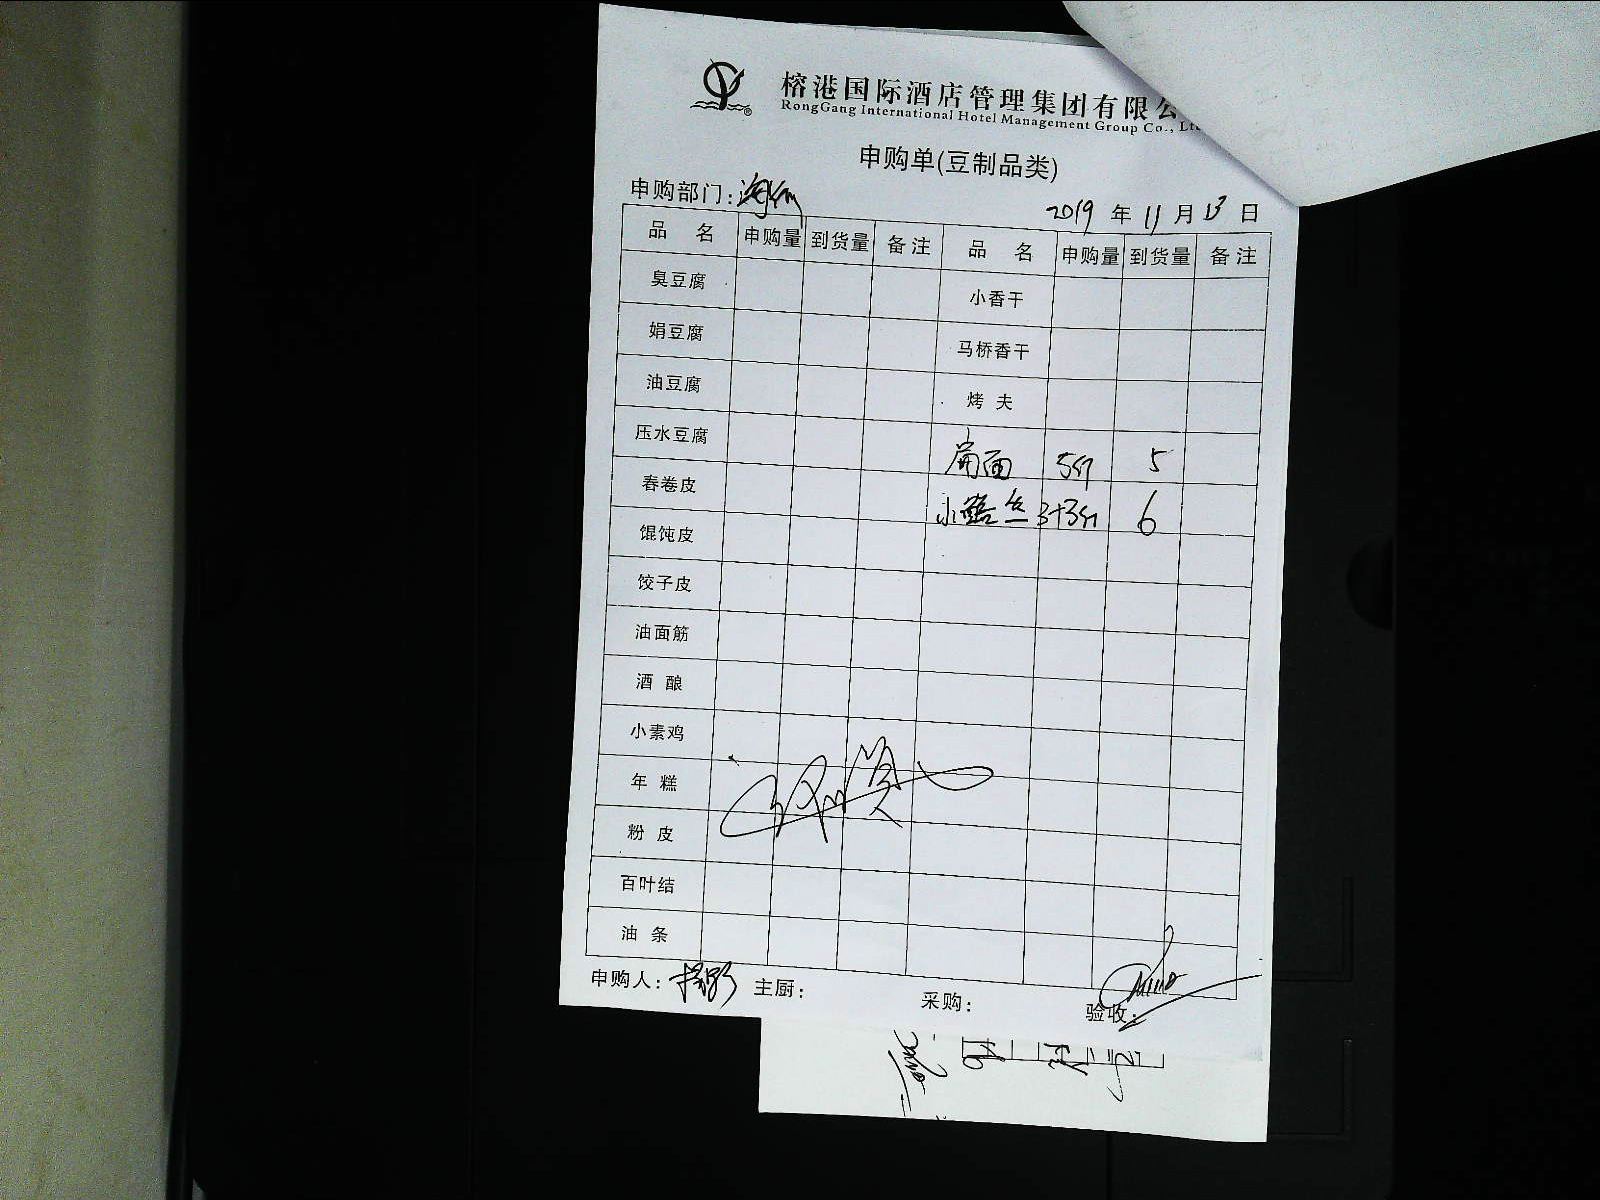 榕港国际酒店管理集团有限公
RongGang International Hotel Management Group Co., Ltd
申购单(豆制品类)
申购部门:
2019 年 11 月 13 日
品 名 申购量 到货量 备注 品 名 申购量 到货量 备注
臭豆腐 小香干
娟豆腐 马桥香干
油豆腐 烤 夫
压水豆腐 面 5斤 5
春卷皮 小 丝 3+3斤 6
馄饨皮
饺子皮
油面筋
酒 酿
小素鸡
年 糕
粉 皮
百叶结
油 条
申购人: 主厨: 采购: 验收: